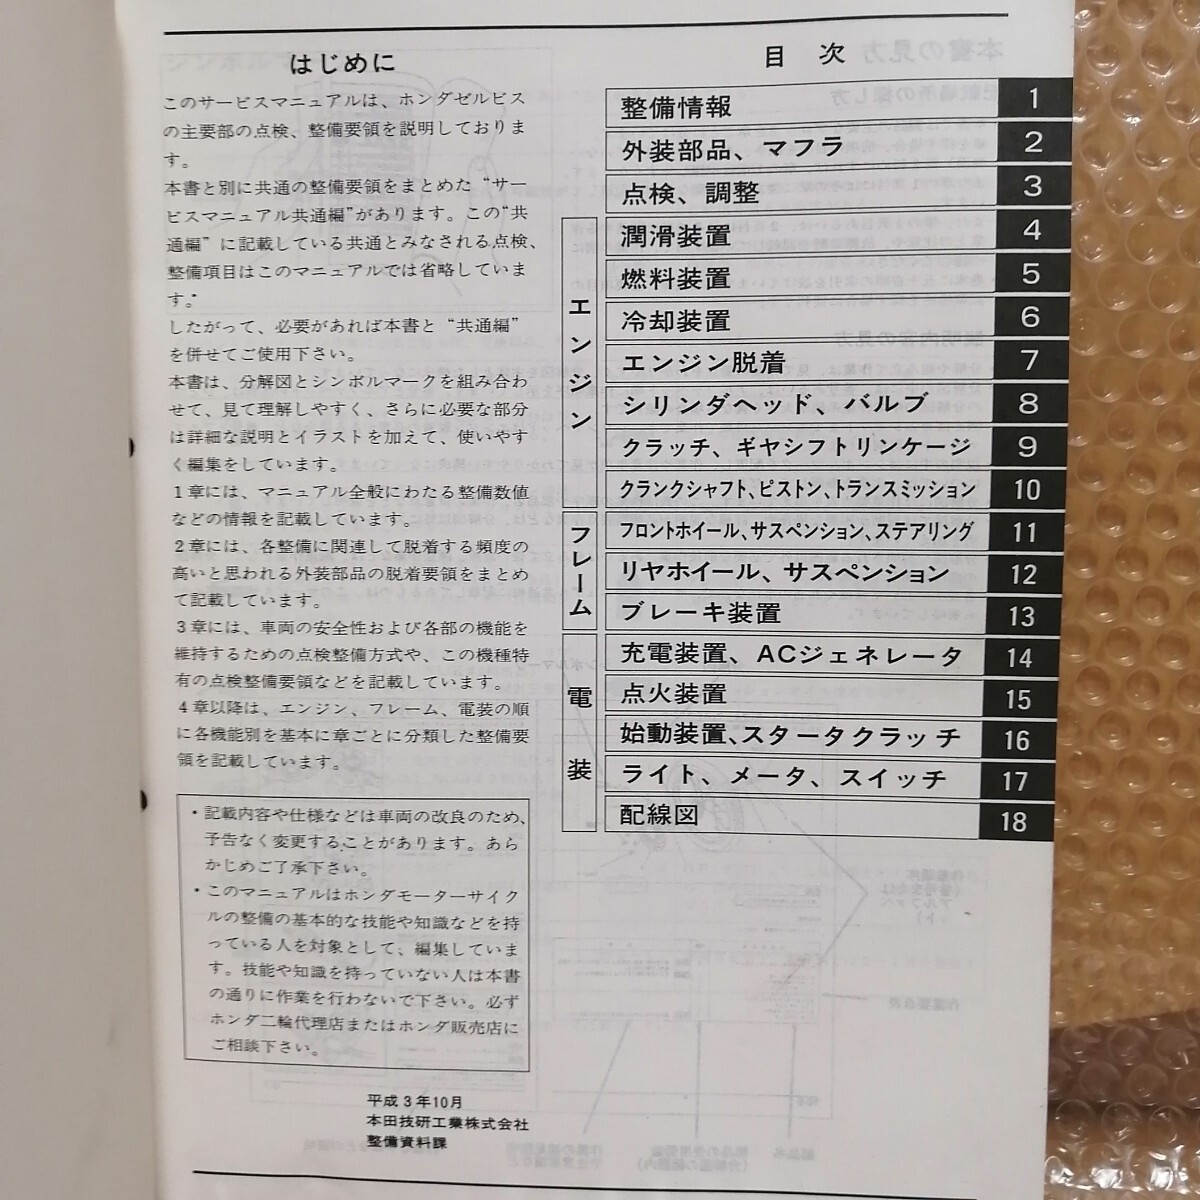 はじめに
このサービスマニュアルは、ホンダゼルビス
の主要部の点検、整備要領を説明しておりま
す。
本書と別に共通の整備要領をまとめた“サー
ビスマニュアル共通編”があります。この“共
通編”に記載している共通とみなされる点検、
整備項目はこのマニュアルでは省略していま
す。
したがって、必要があれば本書と“共通編”
を併せてご使用下さい。
本書は、分解図とシンボルマークを組み合わ
せて、見て理解しやすく、さらに必要な部分
は詳細な説明とイラストを加えて、使いやす
く編集をしています。
1章には、マニュアル全般にわたる整備数値
などの情報を記載しています。
2章には、各整備に関連して脱着する頻度の
高いと思われる外装部品の脱着要領をまとめ
て記載しています。
3章には、車両の安全性および各部の機能を
維持するための点検整備方式や、この機種特
有の点検整備要領などを記載しています。
4章以降は、エンジン、フレーム、電装の順
に各機能別を基本に章ごとに分類した整備要
領を記載しています。
・記載内容や仕様などは車両の改良のため、
予告なく変更することがあります。あら
かじめご了承下さい。
・このマニュアルはホンダモーターサイク
ルの整備の基本的な技能や知識などを持
っている人を対象として、編集していま
す。技能や知識を持っていない人は本書
の通りに作業を行わないで下さい。必ず
ホンダ二輪代理店またはホンダ販売店に
ご相談下さい。
平成3年10月
本田技研工業株式会社
整備資料課
目 次
整備情報 1
外装部品、マフラ 2
点検、調整 3
エンジン
潤滑装置 4
燃料装置 5
冷却装置 6
エンジン脱着 7
シリンダヘッド、バルブ 8
クラッチ、ギヤシフトリンケージ 9
クランクシャフト、ピストン、トランスミッション 10
フレーム
フロントホイール、サスペンション、ステアリング 11
リヤホイール、サスペンション 12
ブレーキ装置 13
電装
充電装置、ACジェネレータ 14
点火装置 15
始動装置、スタータクラッチ 16
ライト、メータ、スイッチ 17
配線図 18